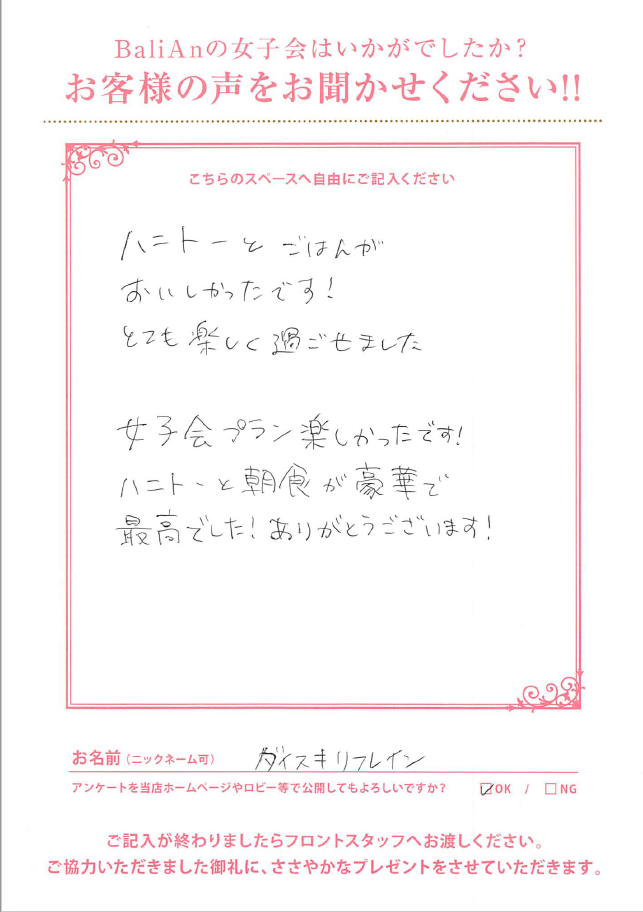 BaliAnの女子会はいかがでしたか？
お客様の声をお聞かせください!!
こちらのスペースへ自由にご記入ください
ハニトーと ごはんが
おいしかったです！
とても楽しく過ごせました
女子会プラン楽しかったです！
ハニトーと朝食が豪華で
最高でした！ありがとうございます！
お名前（ニックネーム可） ダイスキリフレイン
アンケートを当店ホームページやロビー等で公開してもよろしいですか？ ☑OK / □NG
ご記入が終わりましたらフロントスタッフへお渡しください。
ご協力いただきました御礼に、ささやかなプレゼントをさせていただきます。